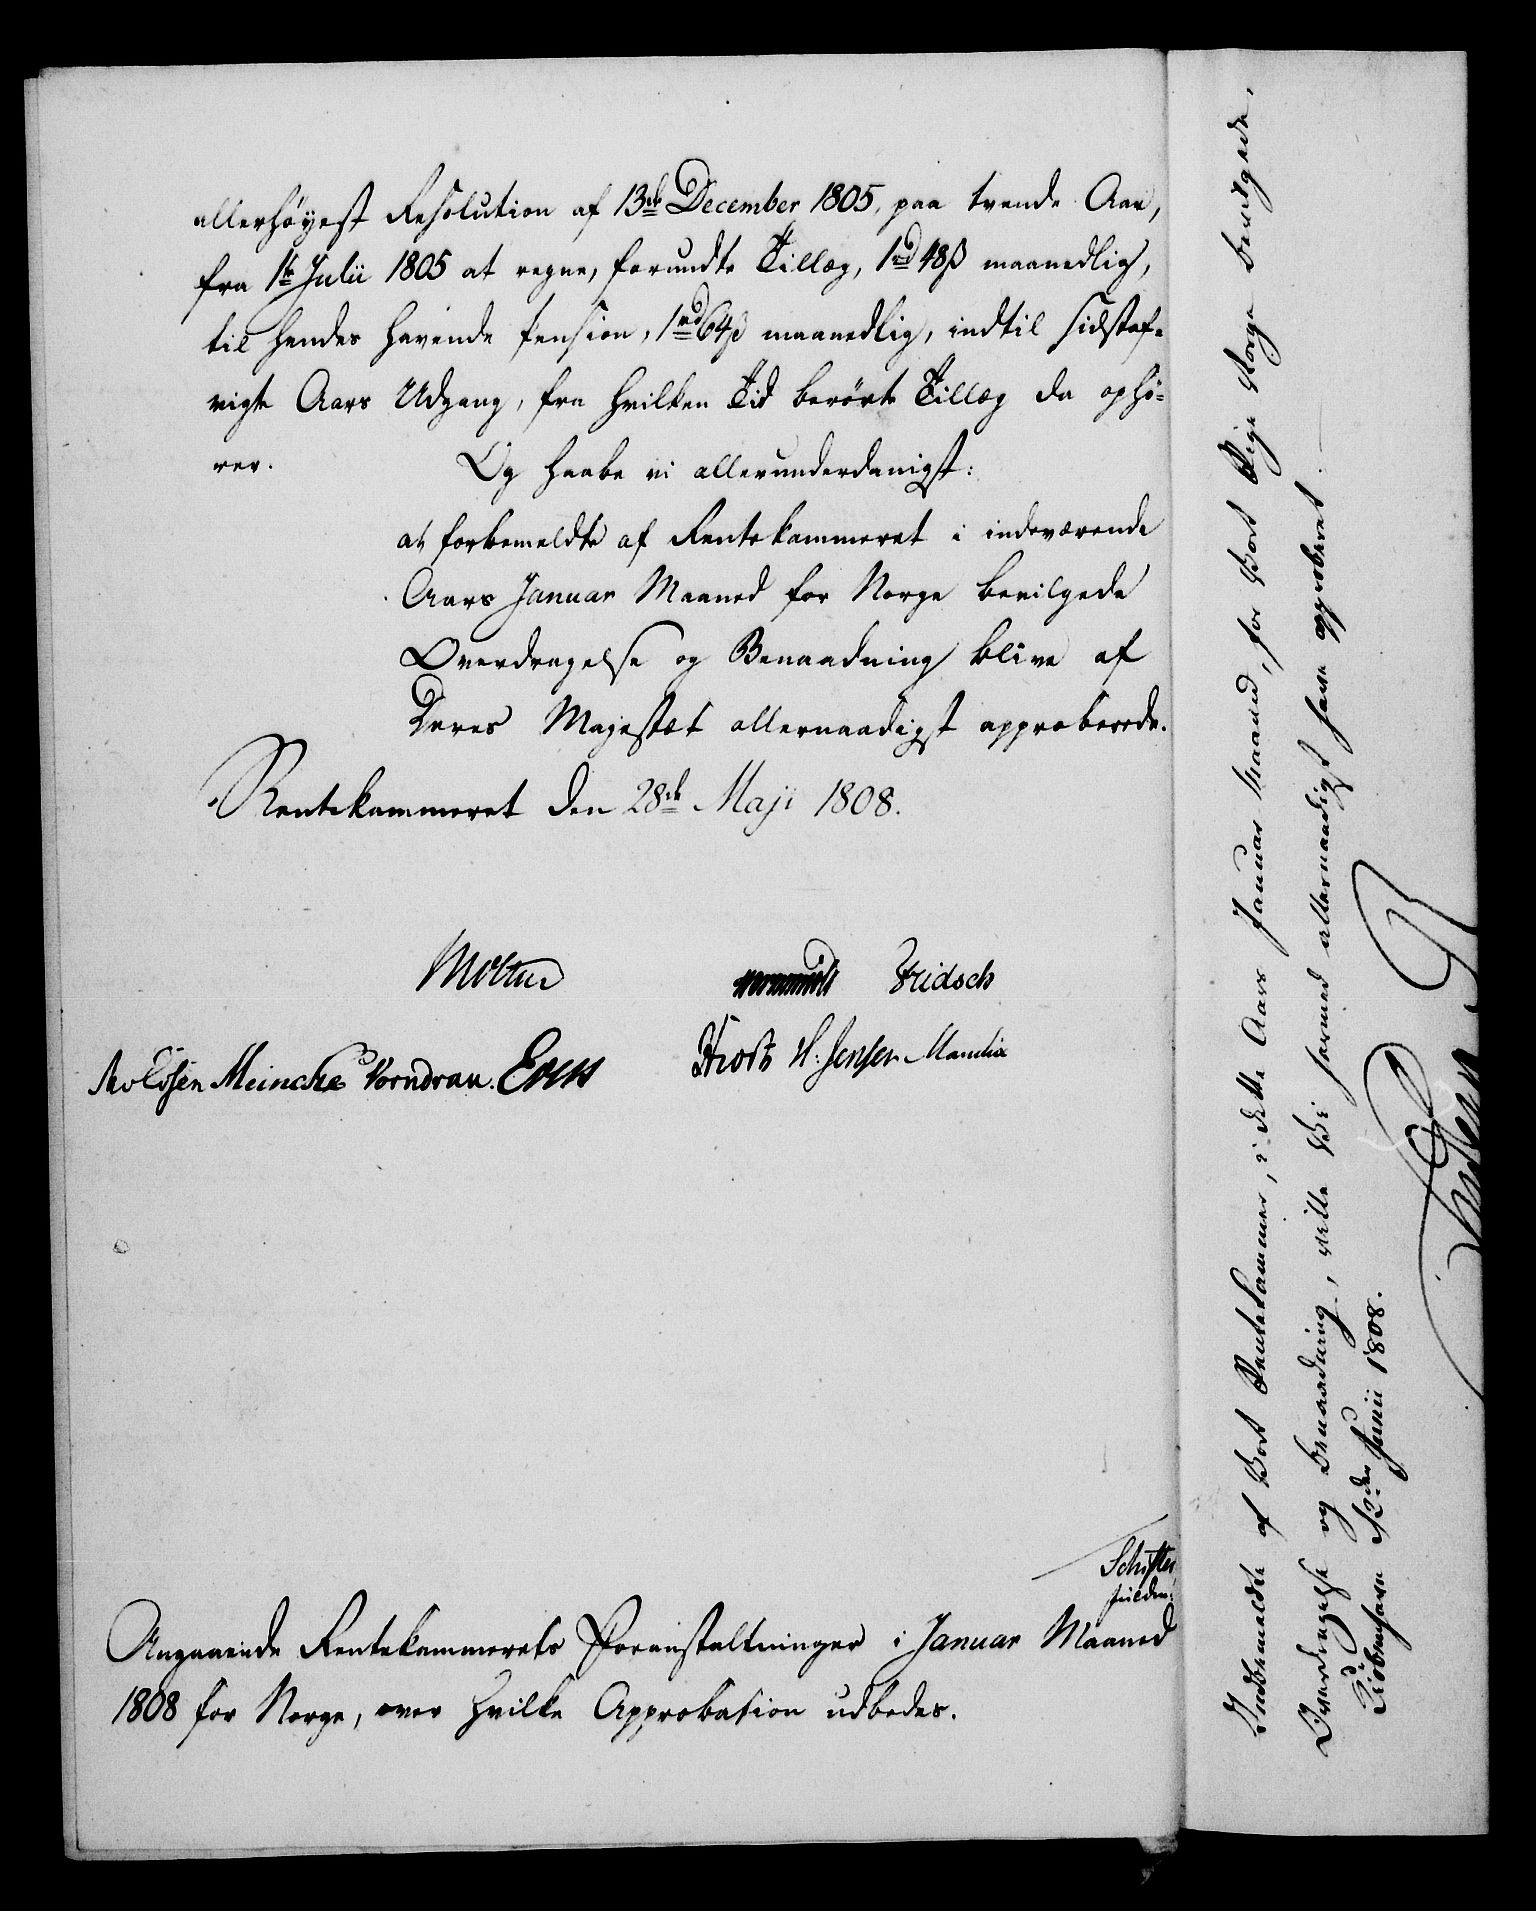 allerhøyest Resolution af 13de December 1805, paa trende Aar,
fra 1te Julii 1805 at regne, forundte Tillæg, 1rd 48ß maanedlig,
til hendes havende Pension, 1rd 64ß maanedlig, indtil sidstaf-
vigte Aars Udgang, fra hvilken Tid berørte Tillæg da ophø-
rer.
Og haabe vi allerunderdanigst:
at forbemeldte af Rentekammeret i indeværende
Aars Januar Maaned for Norge bevilgede
Overdragelse og Benaadning blive af
Deres Majestæt allernaadigst approberede.
Rentekammeret den 28de Maji 1808.
Moltke
Fridsch
Meincke Vorndran.
H: Jensen
Schifter
Angaaende Rentekammerets Foranstaltninger i Januar Maaned
1808 for Norge, over hvilke Approbation udbedes.
Indbemeldte af Vort Rentekammer, i dette Aars Januar Maaned, for Vort Rige Norge bevilgede,
Overdragelse og Benaadning, ville Vi hermed allernaadigst have approberet.
Kiøbenhavn 12den Junii 1808.